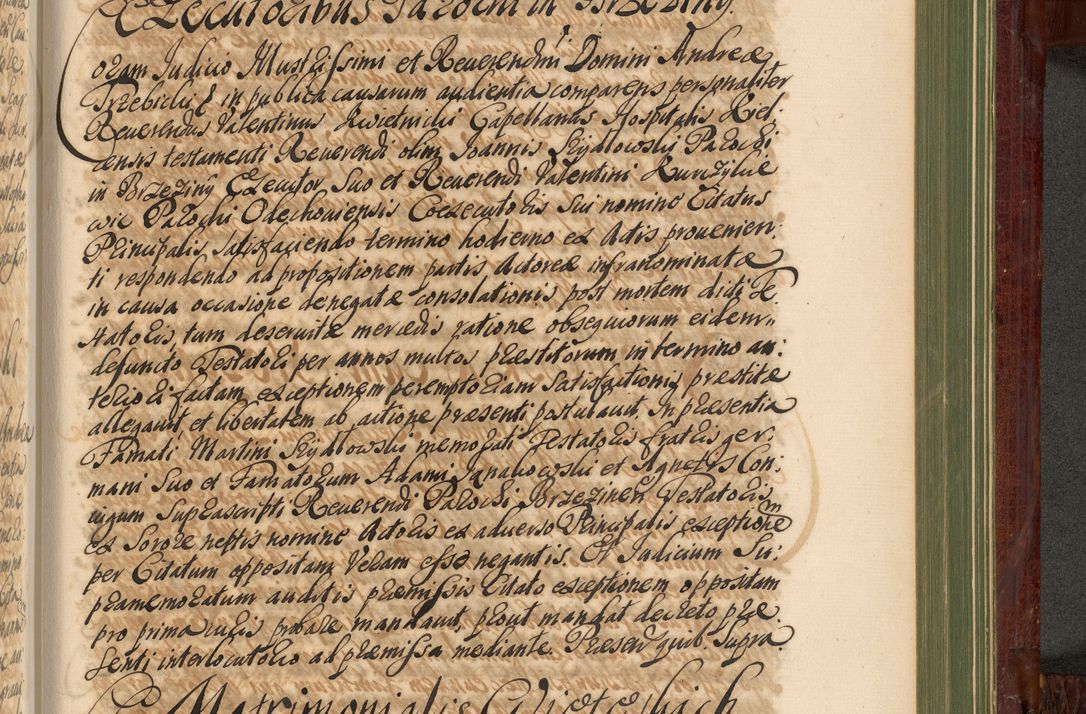 Executoribus Parochi in Brzeziny.
Coram Judicio Illustrissimi et Reuerendmi Domini Andreæ
Trzebicki & in publica causarum audientia comparens personaliter
Reuerendus Valentinus Kwietnicki Capellanus Hospitalis Kiel
censis testamenti Reuerendi olim Joannis Szydlowski Parochi
in Brzeziny Executor, Suo et Reuerendi Valentini Kurzylie
wic Parochi Olechouiensis Coexecutoris Sui nomine Citatus
Principalis Satisfaciendo termino hodierno ex Actis prouenien:
ti respondendo ad propositionem partis Actoreæ infranominatæ
in causa occasione denegatæ consolationis post mortem dicti Te
statoris, tum deseruitæ mercedis ratione obsequiorum eidem
defuncto Testatori per annos multos præstitorum in termino an:
teriori factam exceptionem peremptoriam Satisfactionis præstitæ
allegauit et libertatem ab actione præsenti postulauit, In præsentia
Famati Martini Szydlowski memorati Testatoris fratris ger
mani Suo et Famatorum Adami Janakowski et Agnetis Con
iugum Suprascripti Reuerendi Parochi Brzezinen Testatoris
ex Sorore neptis nomine Actoris ex aduerso Principalis exceptionem
per Citatum oppositam Veram esse negantis. Et Judicium Su:
pramemoratum auditis præmissis Citato exceptionem oppositam
pro prima iuris probare mandauit, prout mandat decreto præ
senti interlocutorio ad præmissa mediante. Præsen quib. Supra
Matrimonialis